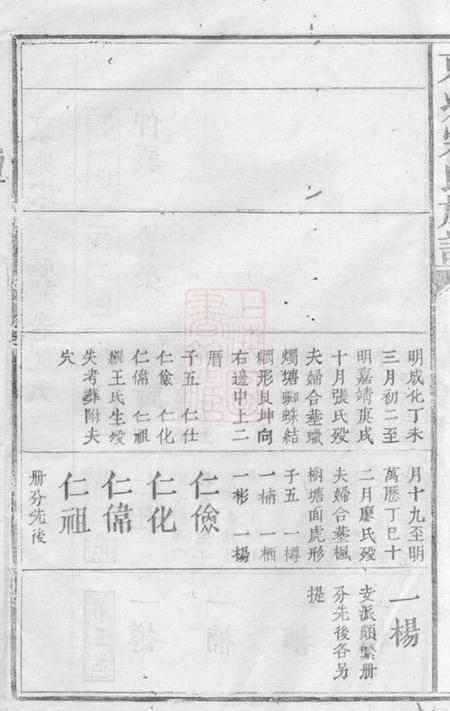 明成化丁未
三月初二至
明嘉靖庚戌
十月張氏殁
夫婦合墓蠟
燭塘蜘蛛結
網形艮坤向
右邊中上二
厝
子五 仁仕
仁儉 仁化
仁偉 仁祖
繼王氏生殁
失考葬附夫
穴
月十九至明
萬曆丁巳十
二月廖氏殁
夫婦合墓楓
樹塘面虎形
子五 一樽
一楠 一栖
一彬 一楊
仁儉
仁化
仁偉
仁祖
册分先後
一楊
支派頗繁册
分先後各另
提
上海圖書館